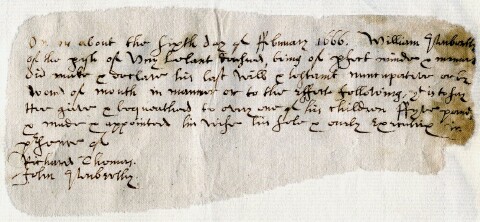 On or about the sixth day of ffebruary 1666. William
of the pish of Uny Lelant deceased, being of pfect minde & memory
did make & declare his last Will & testamt nuncupative or by
word of mouth in manner or to the effect following, yt is to say
Hee giveth & bequeathed to every one of his children ffyve pound
& made & appointed his wife his sole & onely Executrix in
psence of
Richard Thomas.
John